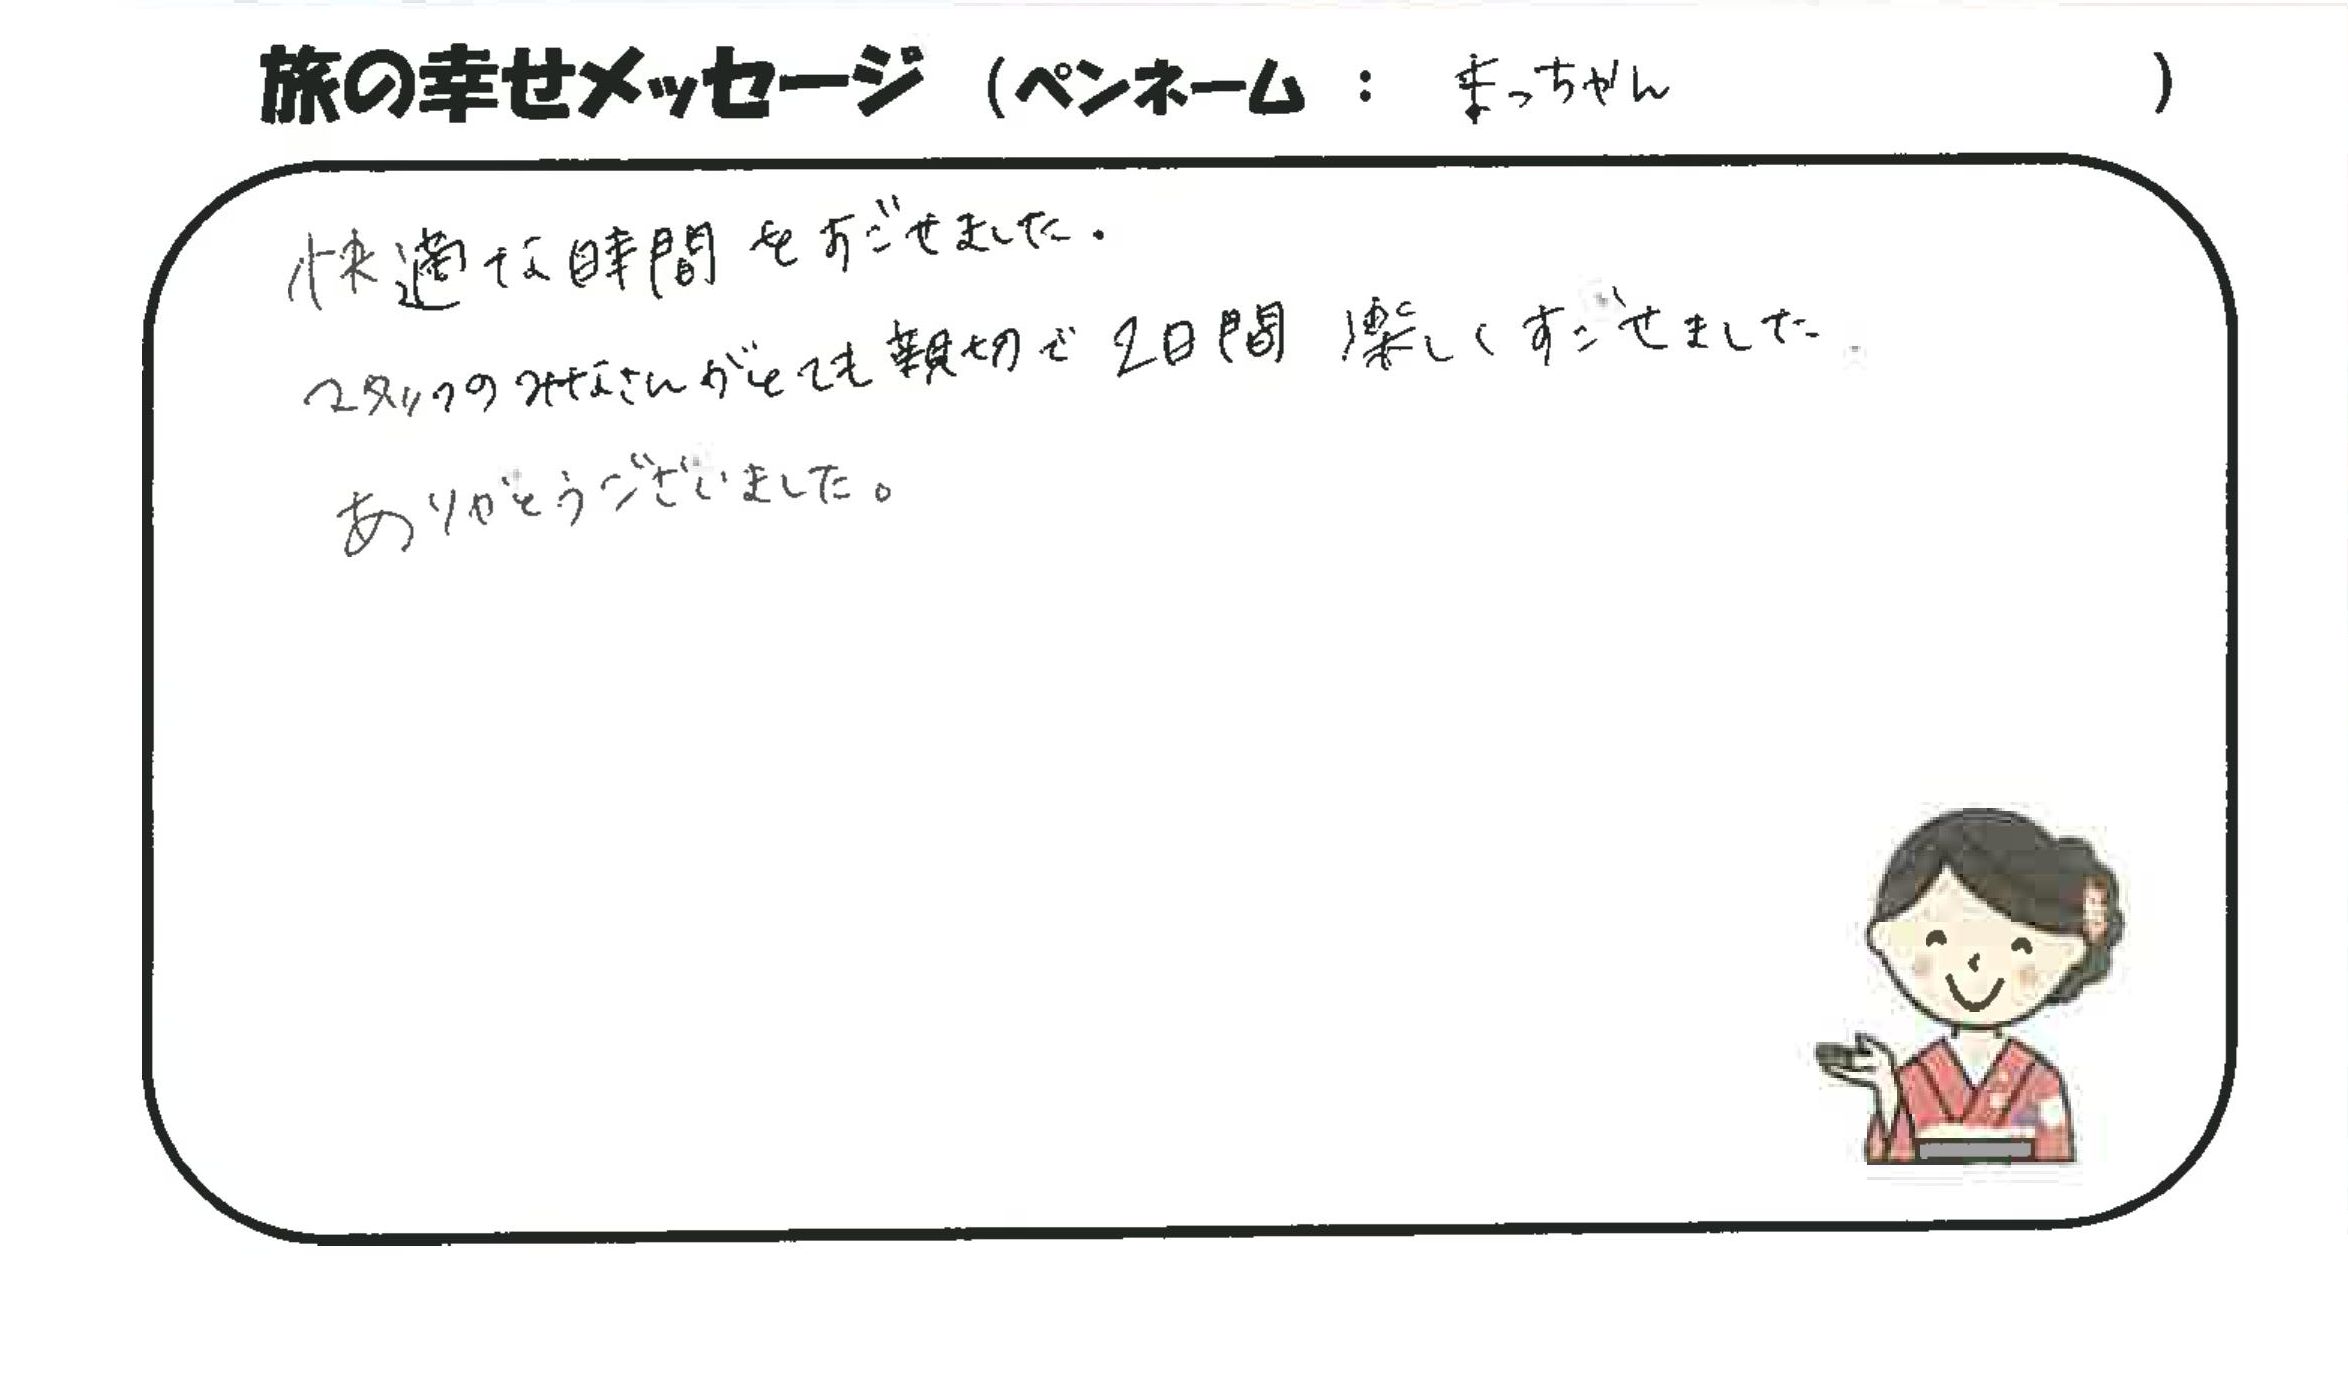 旅の幸せメッセージ (ペンネーム : まっちゃん )
快適な時間をすごせました.
スタッフのみなさんがとても親切で2日間 楽しくすごせました.
ありがとうございました。